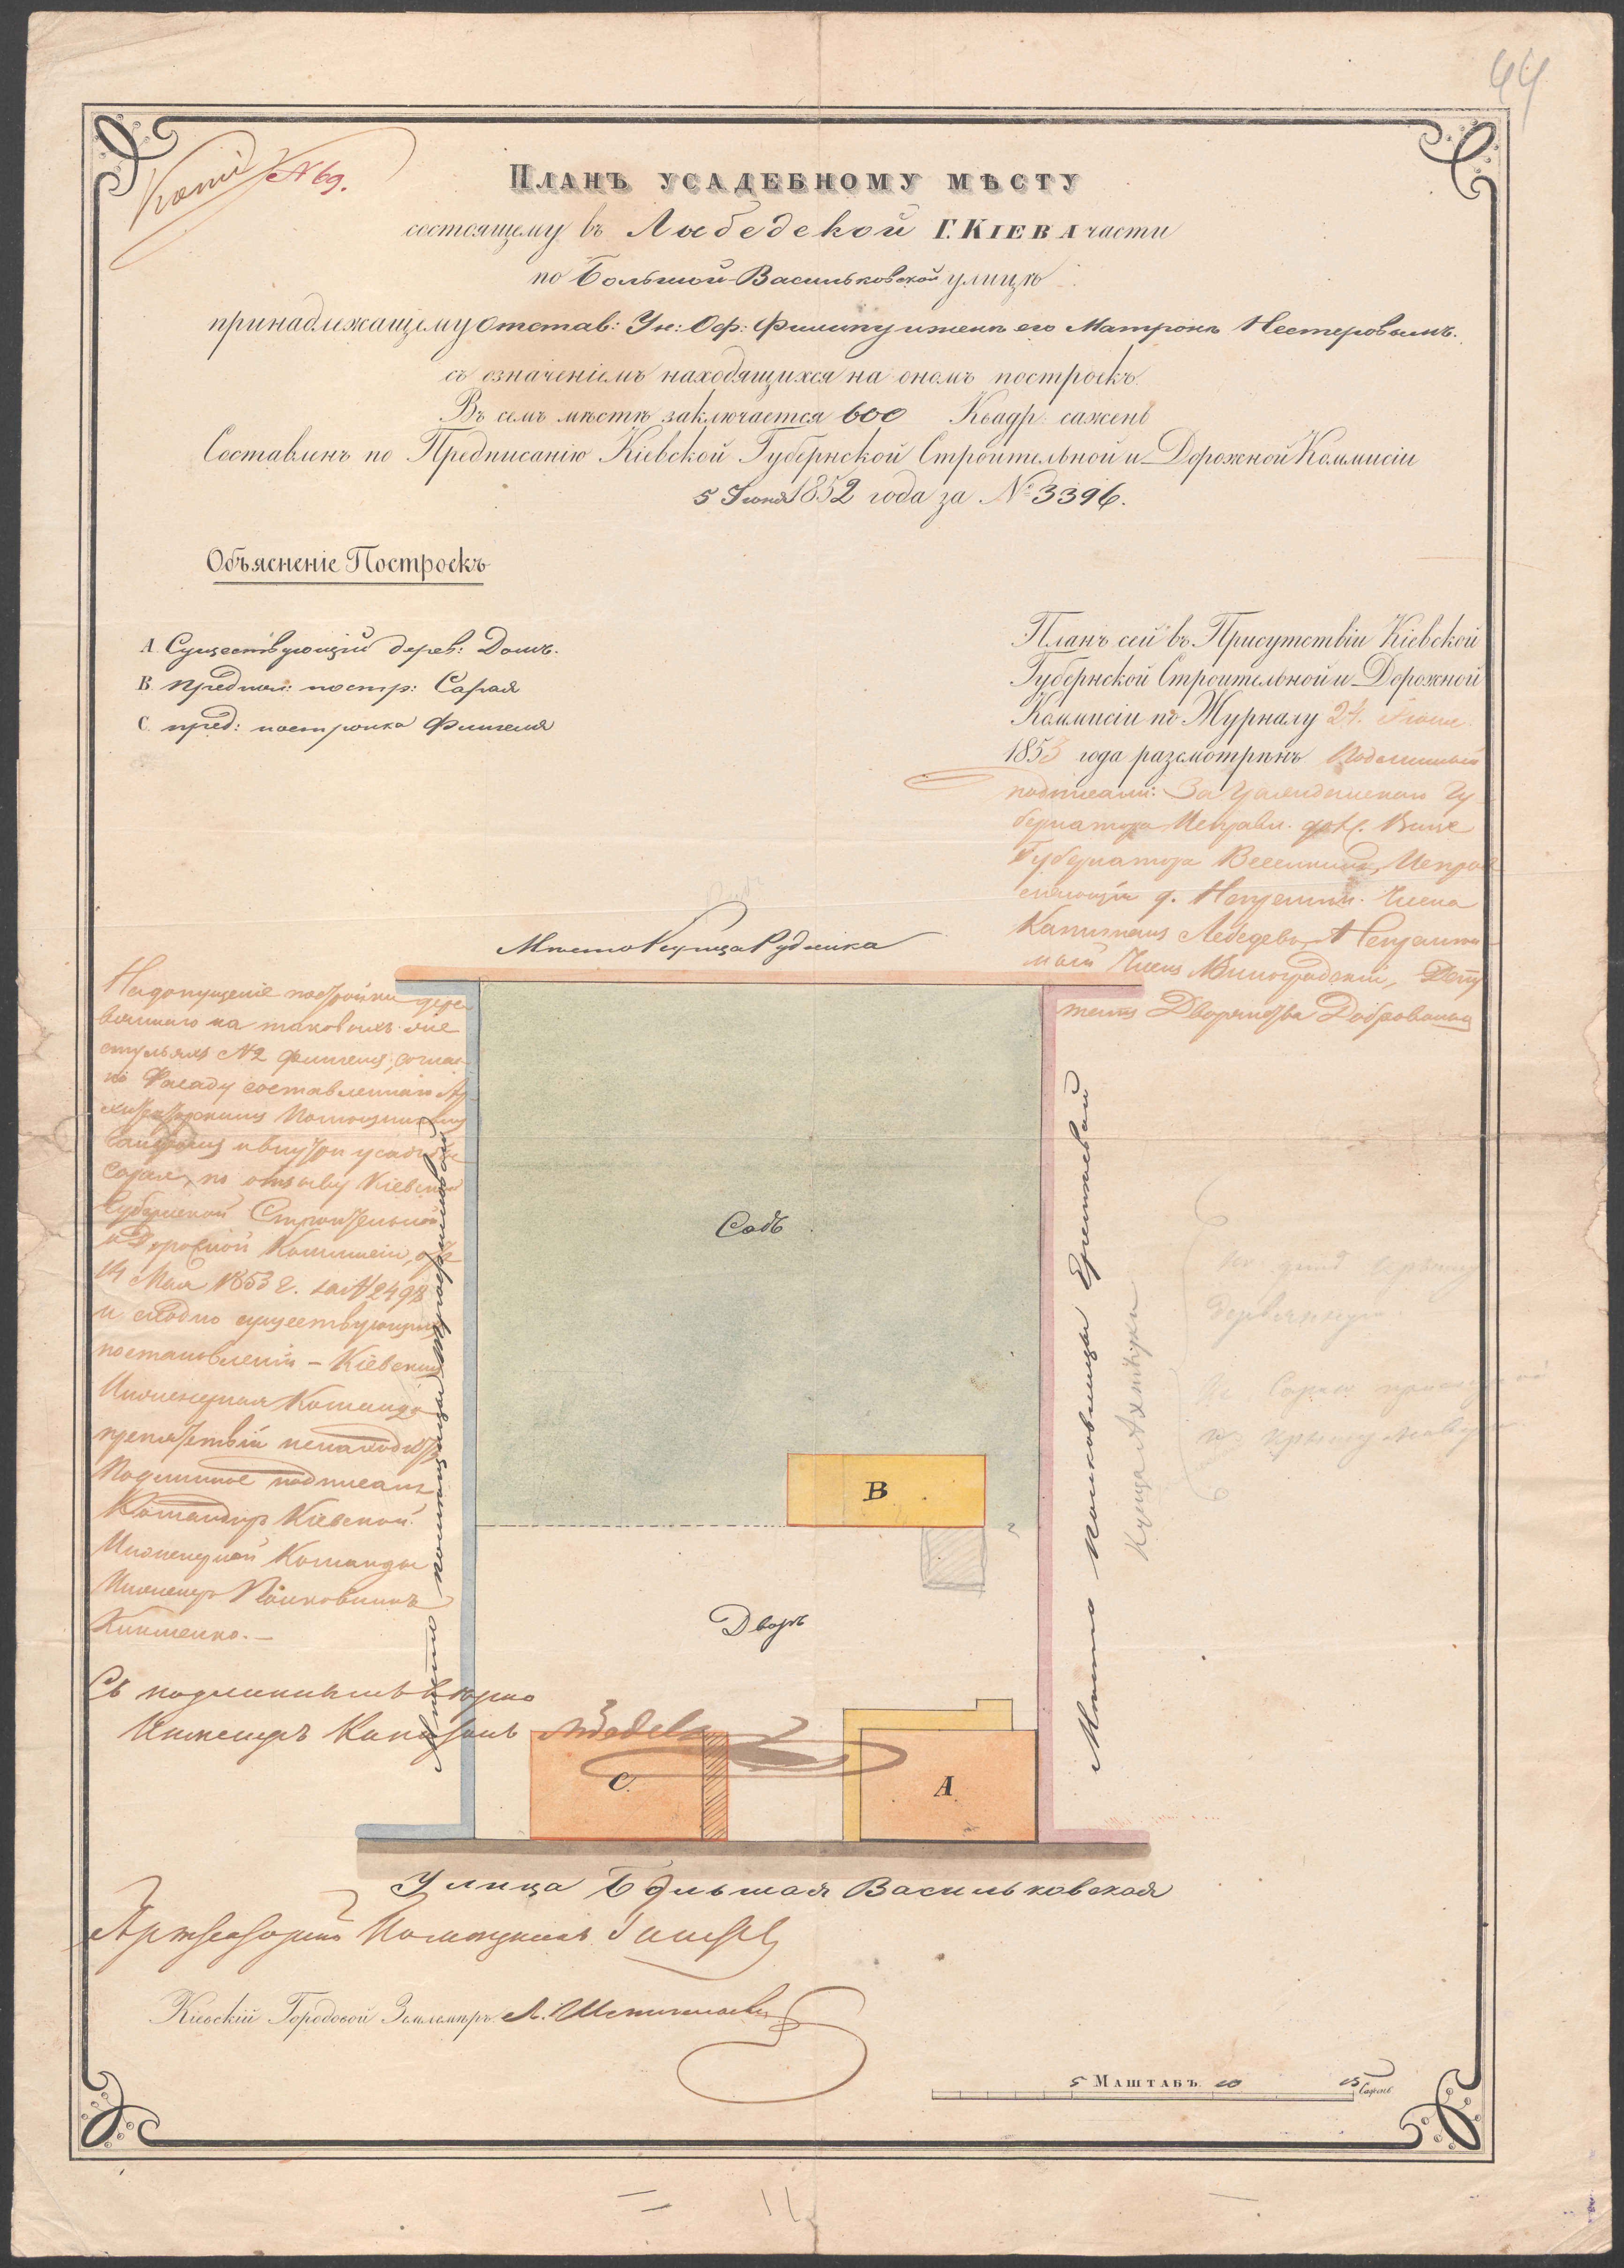 44
Копія
№ 69.
Планъ усадебному мѣсту
состоящему въ Лыбедской Г. Кіева части
по Большой-Васильковской улицѣ
принадлежащему Отстав: Ун: Оф: Филипу и женѣ его Матронѣ Нестеровымъ.
съ означеніемъ находящихся на ономъ построекъ.
Въ семъ мѣстѣ заключается 600 Квадр. сажень
Составленъ по Предписанію Кіевской Губернской Строительной и Дорожной Коммисіи
5 Іюня 1852 года за № 3396.
Объясненіе Построекъ
А. Существующій дерев: Домъ.
В. предпол: постр: Сарая
С. пред: постройка Флигеля
Планъ сей въ Присутствіи Кіевской
Губернской Строительной и Дорожной
Коммисіи по Журналу 24. Іюня
1853 года разсмотрѣнъ. Подлинный
подписали: За Гражданскаго Гу-
бернатора Исправл. долж. Вице
Губернатора Веселкинъ, Исправ-
ляющій д. Непремѣн. Члена
Капитанъ Лебедевъ, Непремѣн-
ный Членъ Виноградскій, Депу-
татъ Дворянства
Мѣсто Купца Рудника
Недопущеніе постройки дере-
вяннаго на таковыхъ же
стульяхъ №2 флигеля, соглас-
но Фасаду составленному Ар-
хитекторскимъ Помощникомъ
и внутри усадьбы
Сарая, по отзыву Кіевской
Губернской Строительной
и Дорожной Коммисіи, отъ
14 Мая 1853 г. за № 2498
и сходно существующимъ
постановленій – Кіевская
Инженерная Команда
препятствій не находитъ
Подлинное подписалъ
Командиръ Кіевской
Инженерной Команды
Инженеръ Полковникъ
Мѣсто помѣщицы
Садъ
В
Дворъ
С.
А.
Мѣсто Полковницы
Купца
Съ подлиннымъ вѣрно
Инженеръ Капитанъ
Улица Большая Васильковская
Архитекторскій Помощникъ
Кіевскій Городовой Землемѣръ
5 Маштабъ. 10 15 Сажень